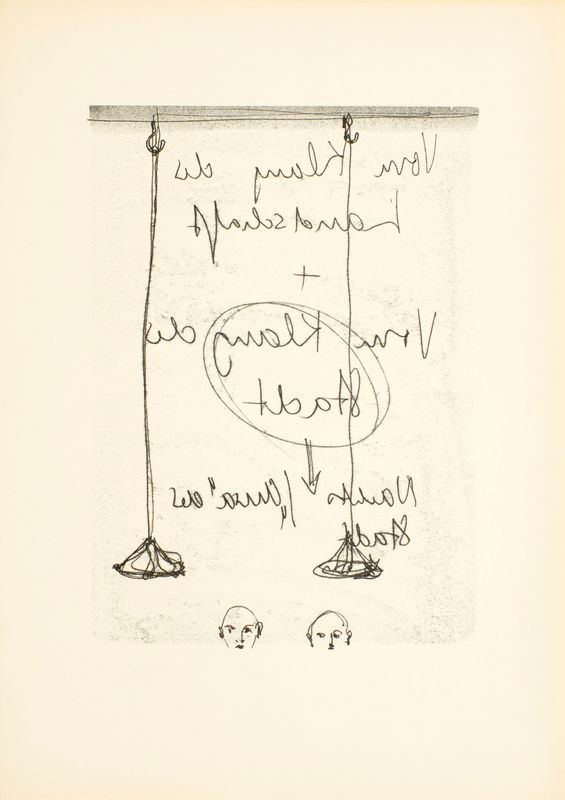 Vom Klang der
Landschaft
+
Vom Klang der
Stadt
Nachts / "Aura" der
Stadt